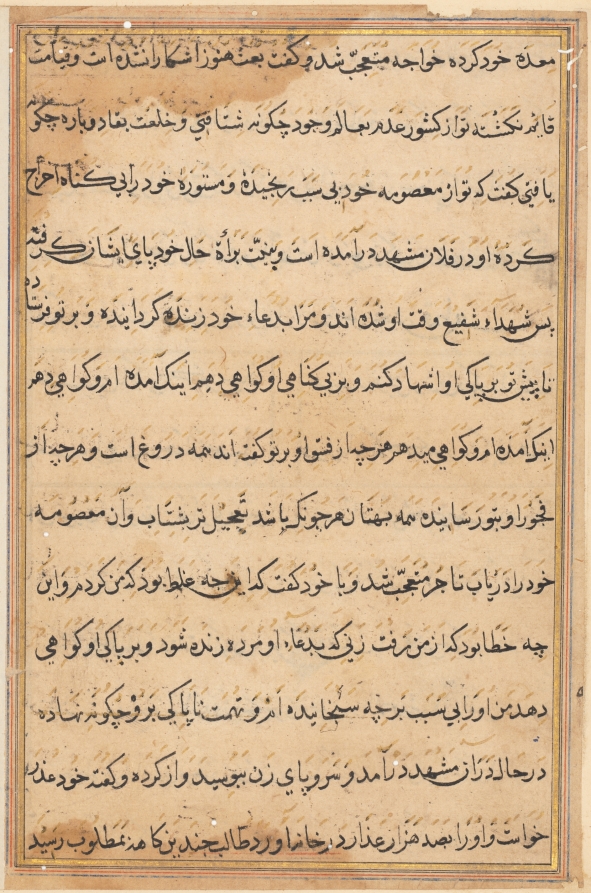 معده خود کرده خواجه متعجب شد و گفت بعث هنوز آشکارا نشده است و قیامت
قایم نگشته تو از کشور عدم بعالم وجود چگونه شتافتی و خلعت بقا دوباره چگونه
یافتی گفت که تو از معصومه خود بی سبب رنجیدهٔ و مستورهٔ خود را بی گناه اخراج
کردهٔ او در فلان مشهد در آمده است و بجهت براءة حال خود پای ایشان گرفته
پس شهداء شفیع وقت او شده اند و مرا بدعاء خود زنده گردانیده و بر تو فرستاده
تا پیش تو بر پاکی او اشهاد کنم و بر بی گناهی او گواهی دهم اینک آمده ام و گواهی دهم
اینک آمده ام و گواهی میدهم هر چه از فسق او بر تو گفته اند همه دروغ است و هر چه از
فجور او بتو رسانیده همه بهتان هر چونک باشد تعجیل تر بشتاب و آن معصومه
خود را دریاب تاجر متعجب شد و با خود گفت که این چه غلط بود که من کردم و این
چه خطا بود که از من رفت زنی که بدعاء او مرده زنده شود و بر پاکی او گواهی
دهد من او را بی سبب بر چه سنجانیده ام و تهمت ناپاکی برو چگونه نهاده
در حال در ان مشهد در آمد و سر و پای زن ببوسید و از کرده و گفته خود عذر
خواست و او را بصد هزار عذار در خانه اورد طالب چندین کاهنه بمطلوب رسید